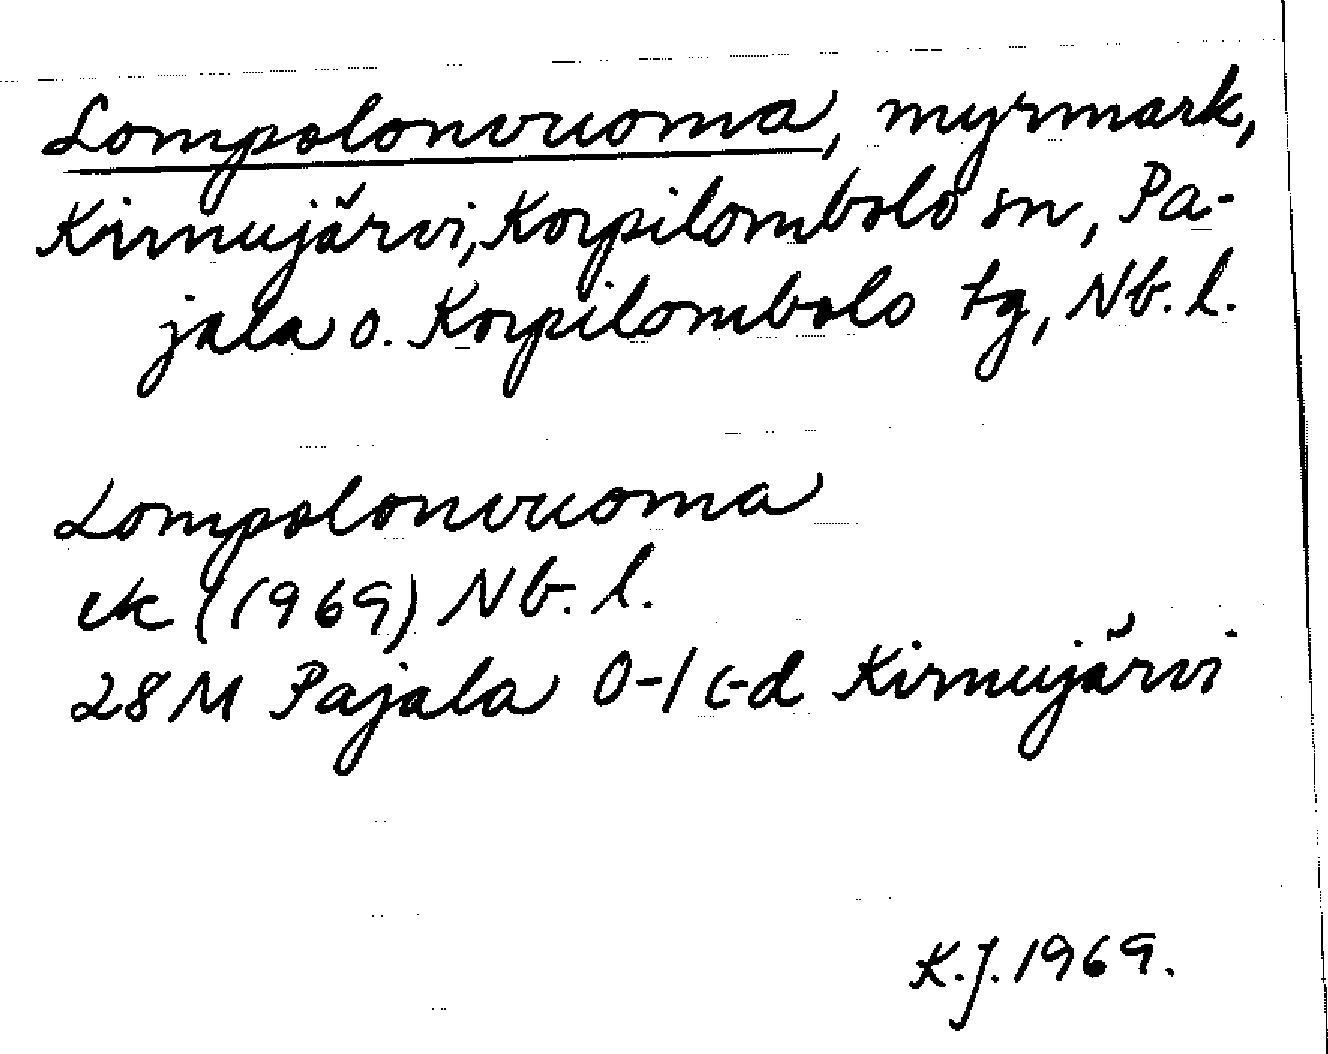 Lompolonvuoma, myrmark,
Kirnujärvi, Korpilombolo sn, Pa-
jala o. Korpilombolo tg, Nb. l.
Lompolonvuoma
ek (1969) Nb. l.
28 M Pajala 0-1 c-d Kirnujärvi
K.J. 1969.